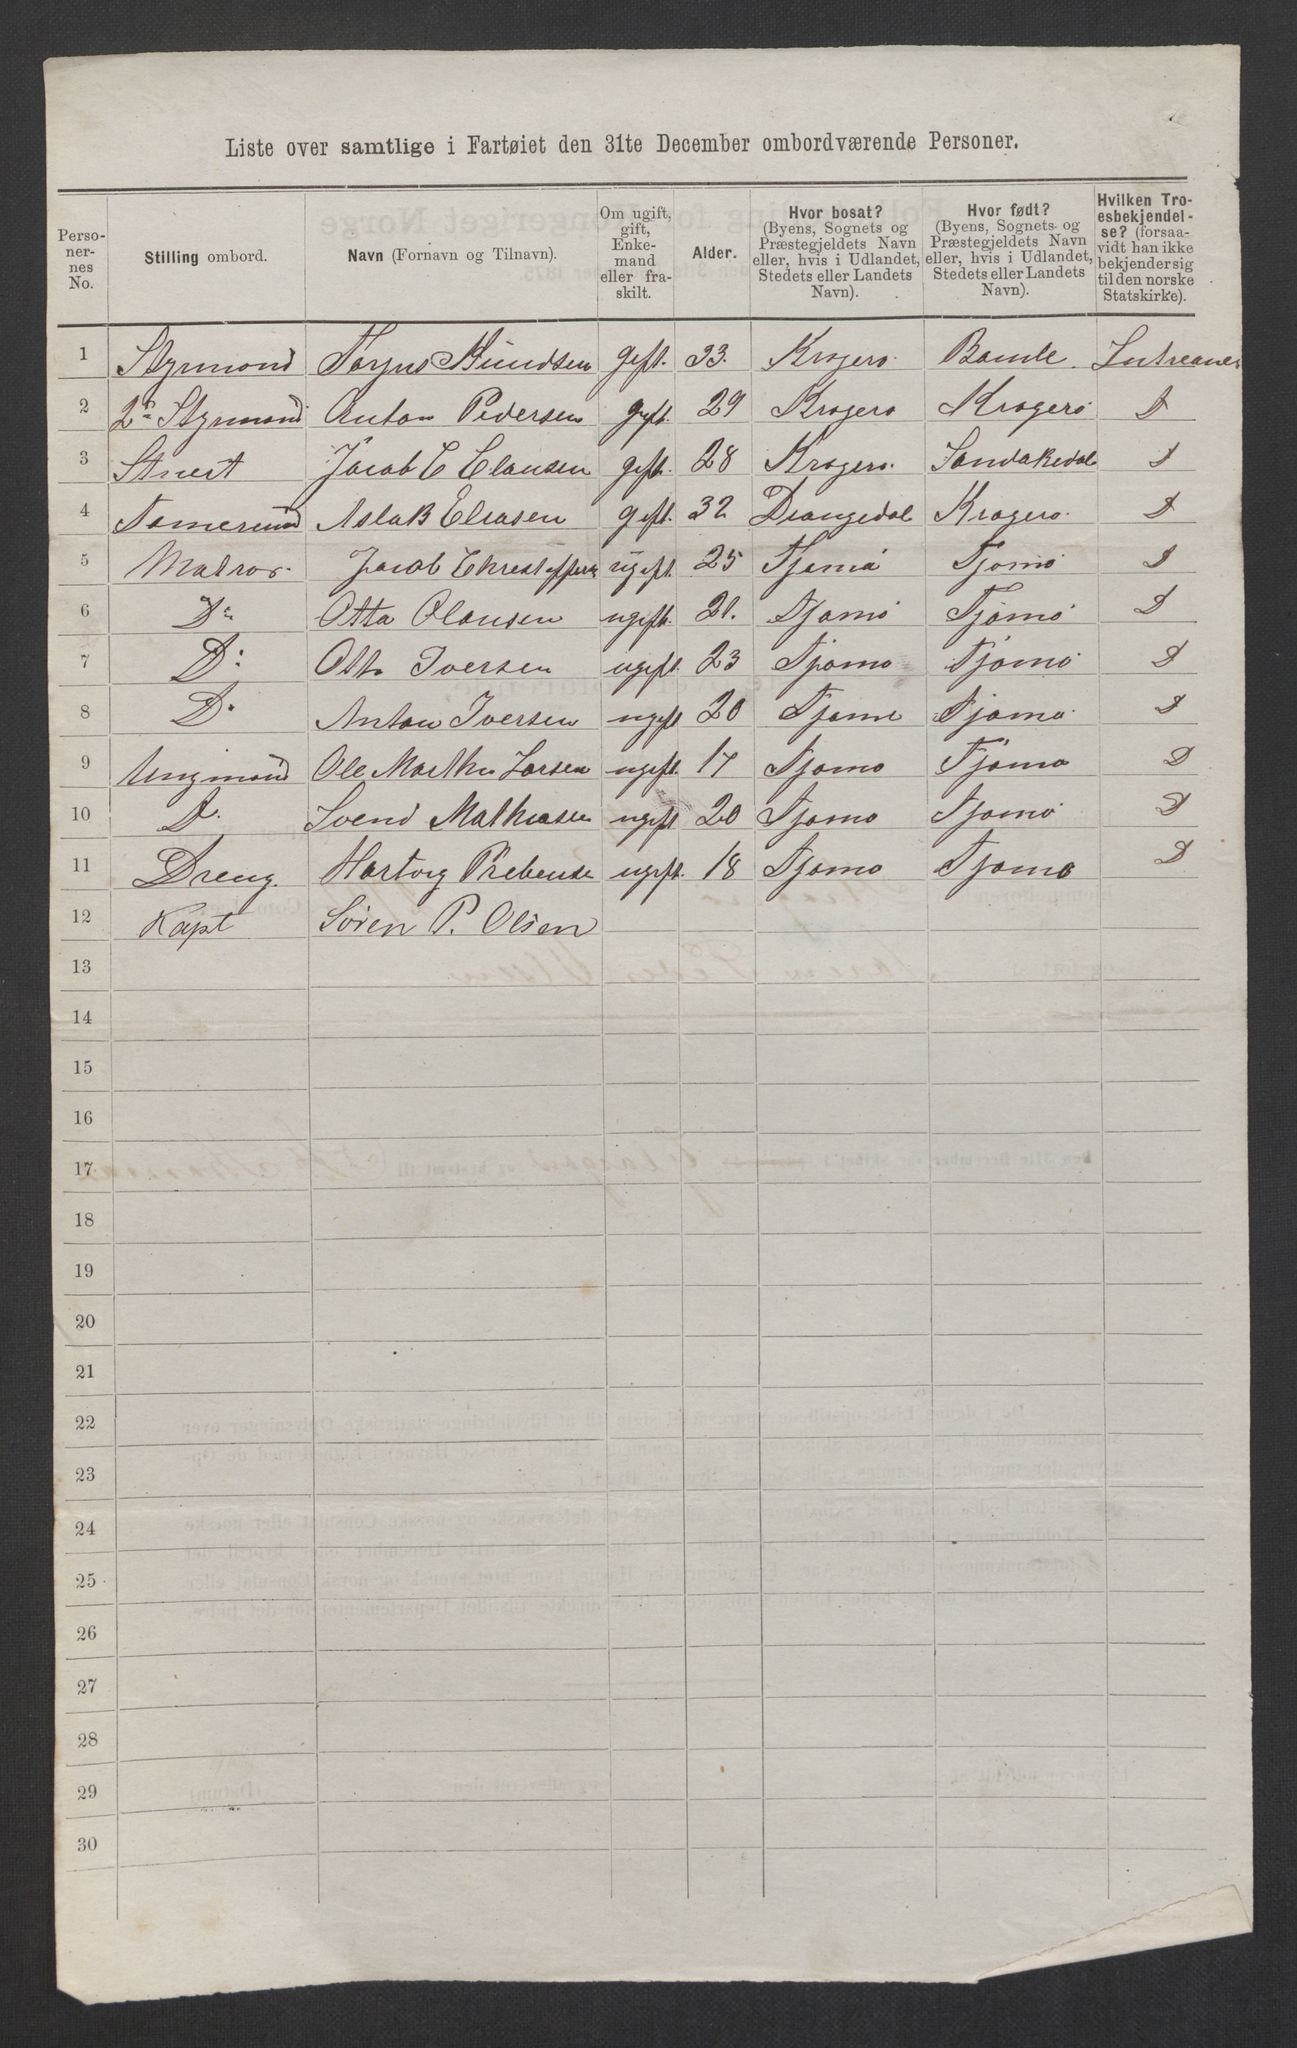 Liste over samtlige i Fartøiet den 31te December ombordværende Personer.
Perso-
ner-
nes
No.
Stilling ombord.
Navn (Fornavn og Tilnavn).
Om ugift,
gift,
Enke-
mand
eller fra-
skilt.
Alder.
Hvor bosat?
(Byens, Sognets og
Præstegjeldets Navn
eller, hvis i Udlandet,
Stedets eller Landets
Navn).
Hvor født?
(Byens, Sognets- og
Præstegjeldets Navn
eller, hvis i Udlandet,
Stedets eller Landets
Navn).
Hvilken Tro-
esbekjendel-
se? (forsaa-
vidt han ikke
bekjender sig
til den norske
Statskirke).
1 Styrmand Knudsen gift. 33. Kragerø Bamle.
2 2d Styrmand Anton Pedersen gift. 29 Kragerø Kragerø D
3 Stuert Jacob C Clausen gift. 28 Kragerø. Sandøkedal D
4 Tømermand Aslak Eliasen gift. 32 Drangedal Kragerø. D
5 Matros. Jacob ugift. 25 Tjømø Tjømø D
6 Do Otto Olausen ugift. 21. Tjømø Tjømø D
7 D: Otto Iversen ugift 23 Tjømø Tjømø D
8 D. Anton Iversen ugift 20 Tjømø Tjømø. D
9 Ungmand Ole Larsen ugift. 17 Tjømø Tjømø D
10 D. Svend Mathiasen ugift 20 Tjømø Tjømø D
11 Dreng. Hartvig Prebense ugift. 18 Tjømø Tjømø D
12 Kapt Søren P. Olsen
13
14
15
16
17
18
19
20
21
22
23
24
25
26
27
28
29
30